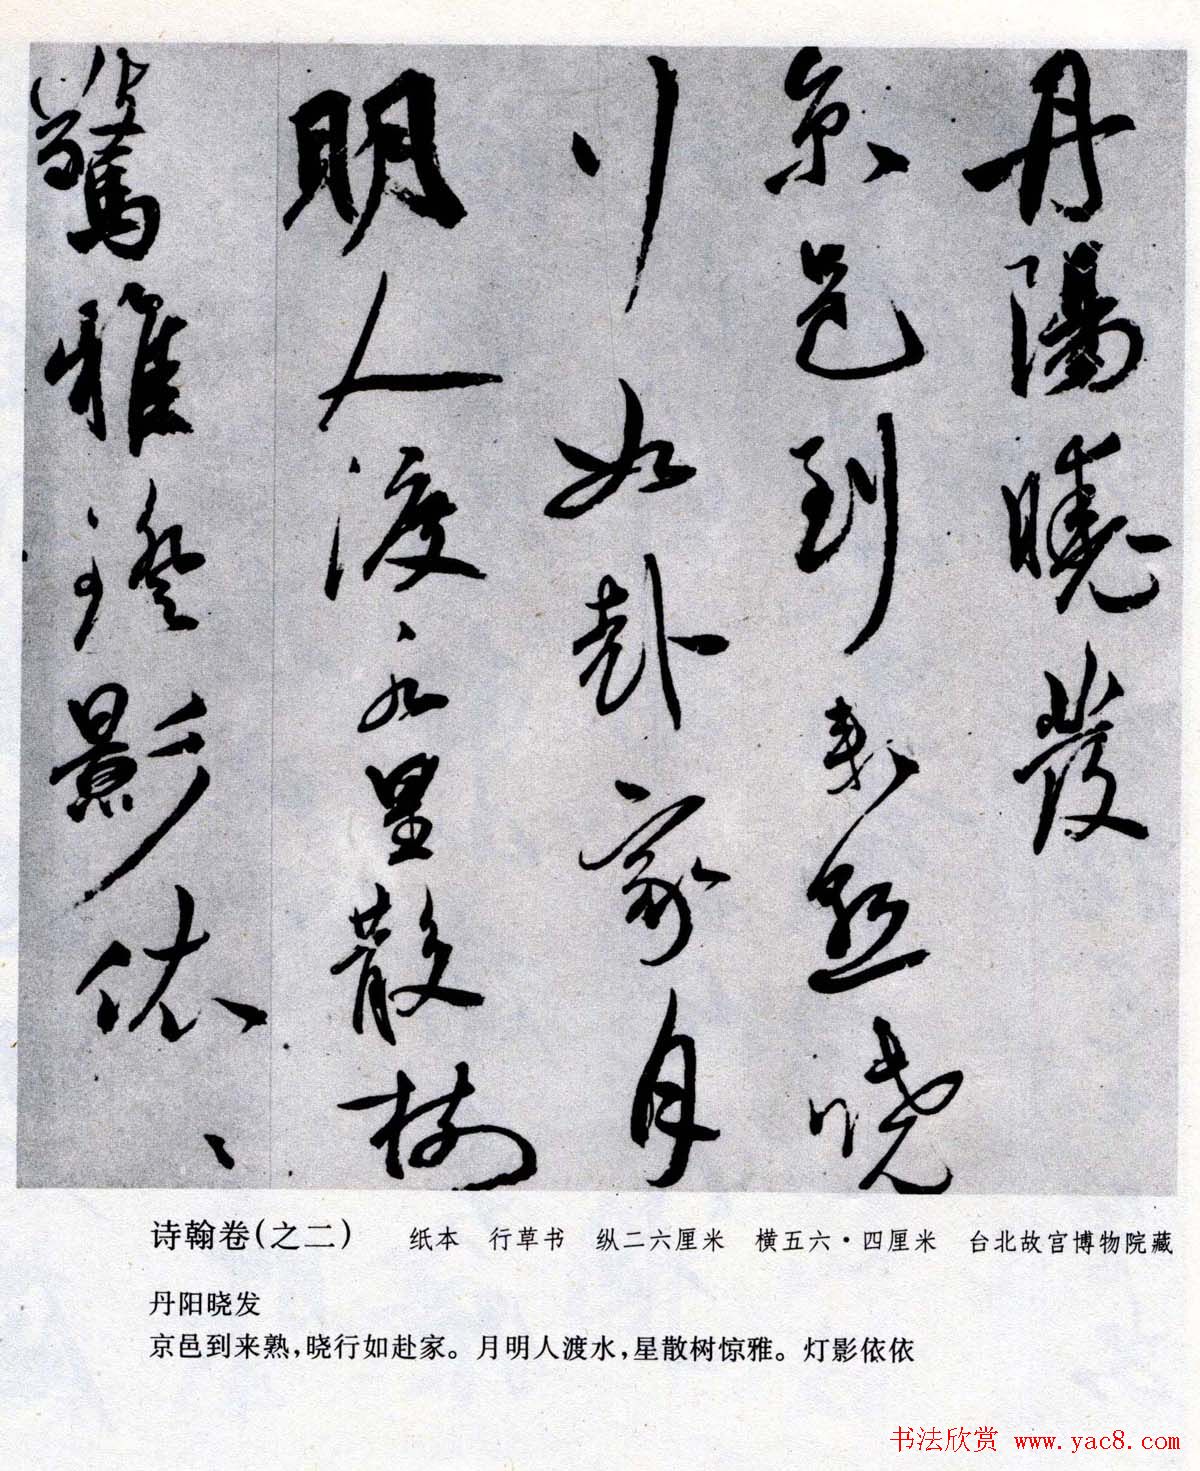 丹陽曉發
京邑到來熟曉
行如赴家月
明人渡水星散樹
驚雅燈影依、
、
诗翰卷(之二) 纸本 行草书 纵二六厘米 横五六·四厘米 台北故宫博物院藏
丹阳晓发
京邑到来熟,晓行如赴家。月明人渡水,星散树惊雅。灯影依依
书法欣赏 www.yac8.com